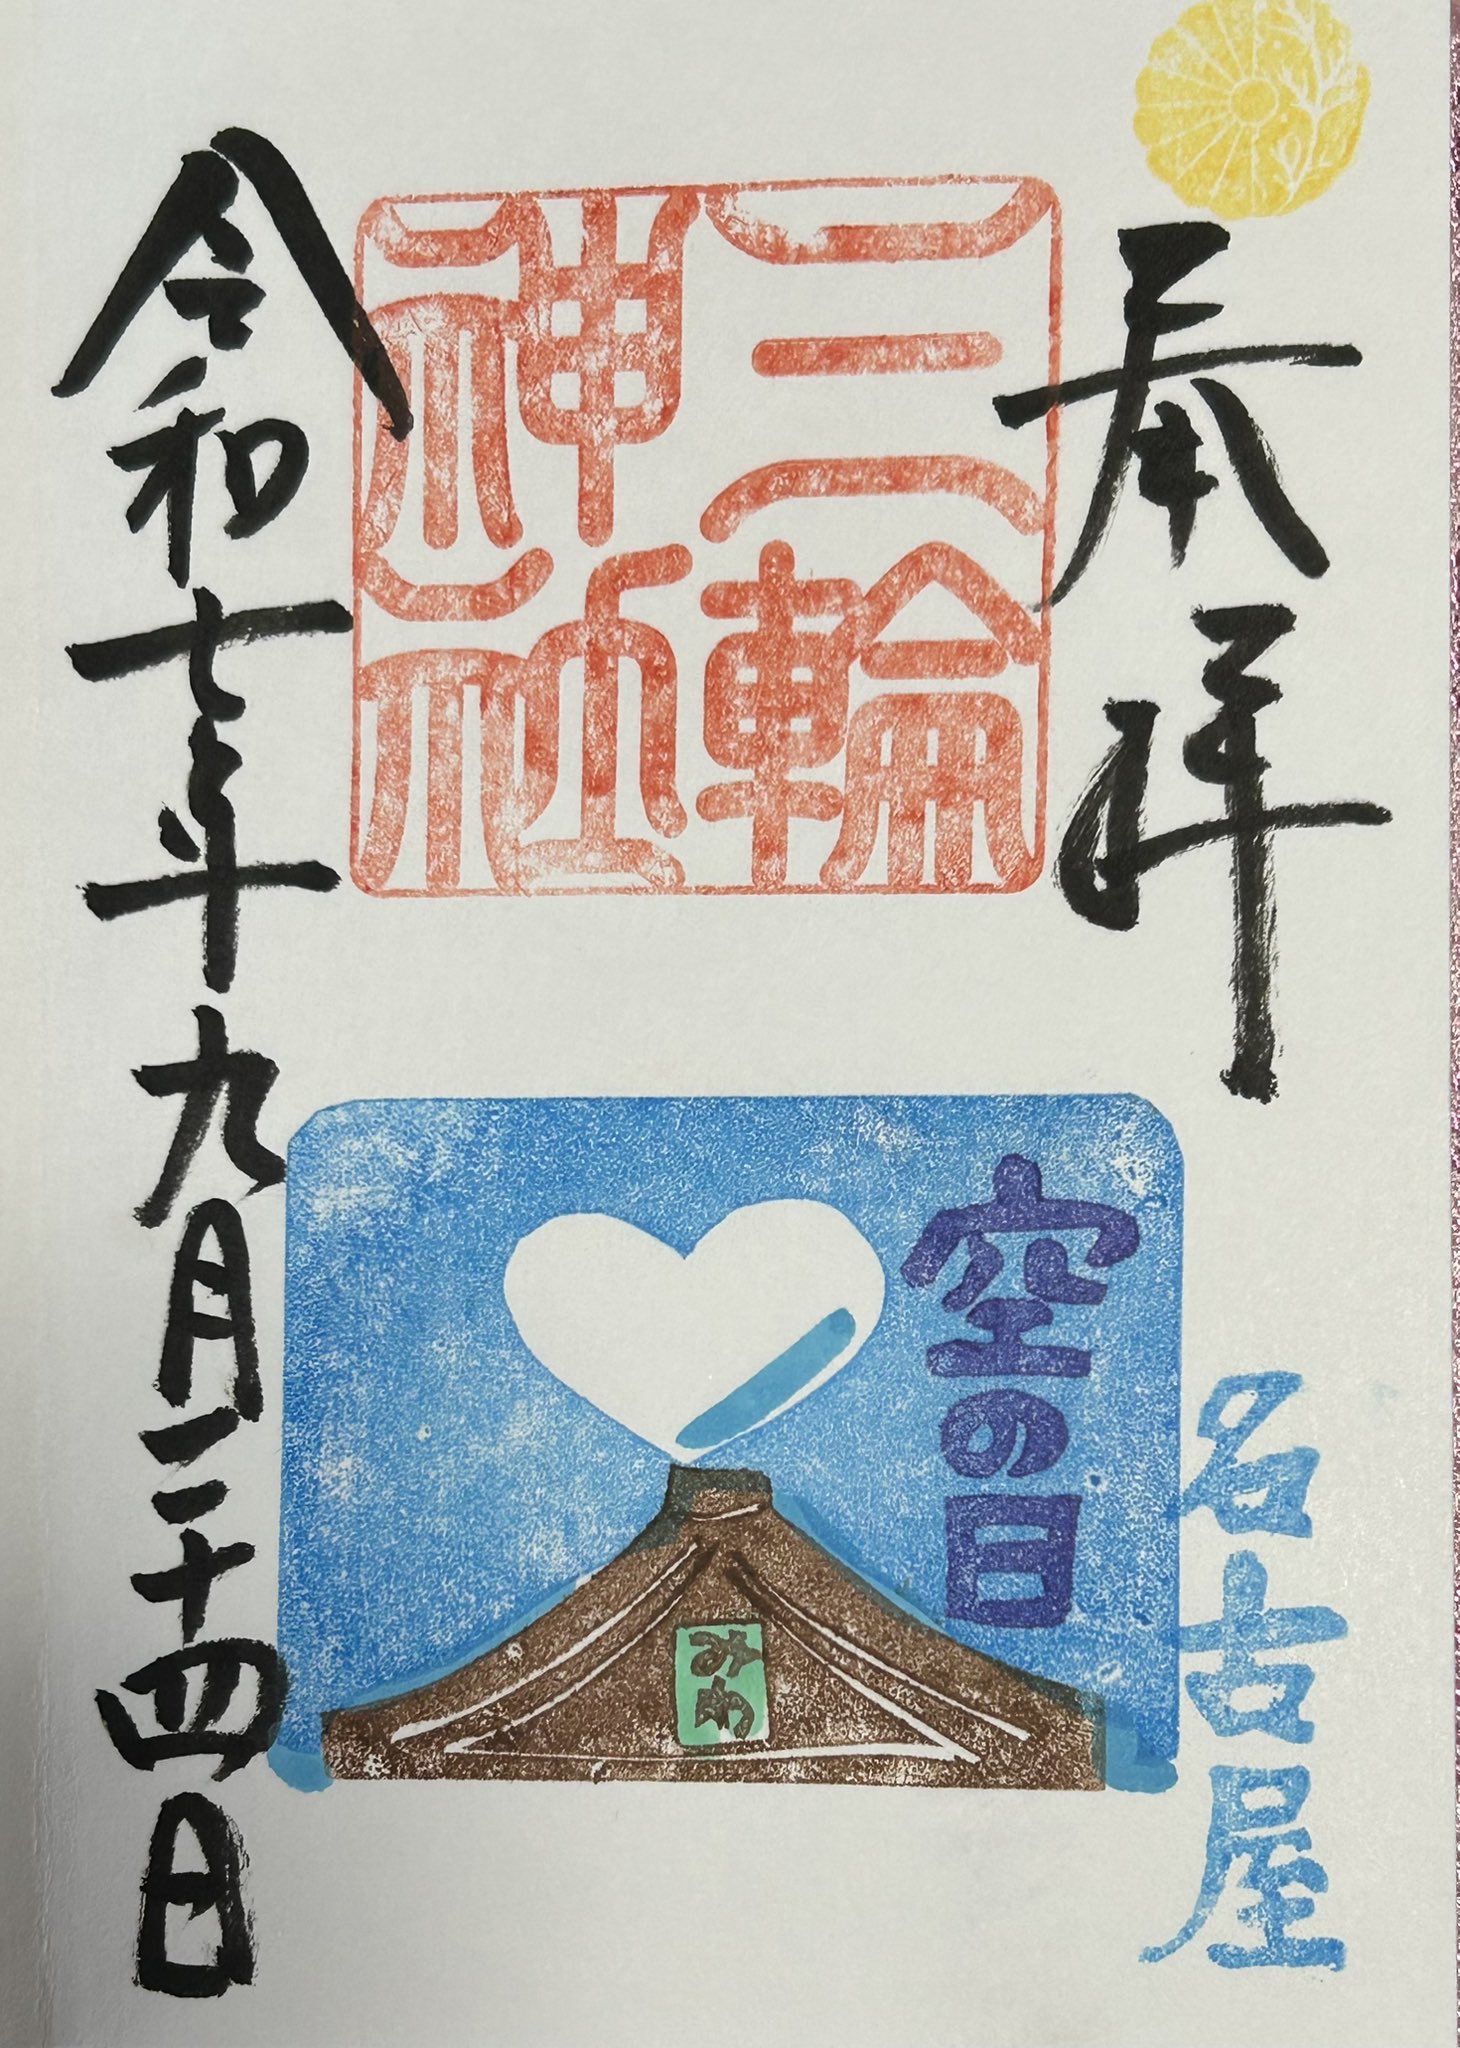 奉拝
名古屋
三輪
神社
空の日
みわ
令和七年九月二十四日